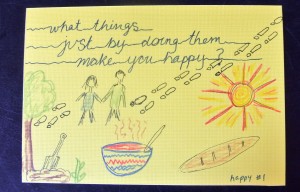 what things
just by doing them
make you happy?
happy #1